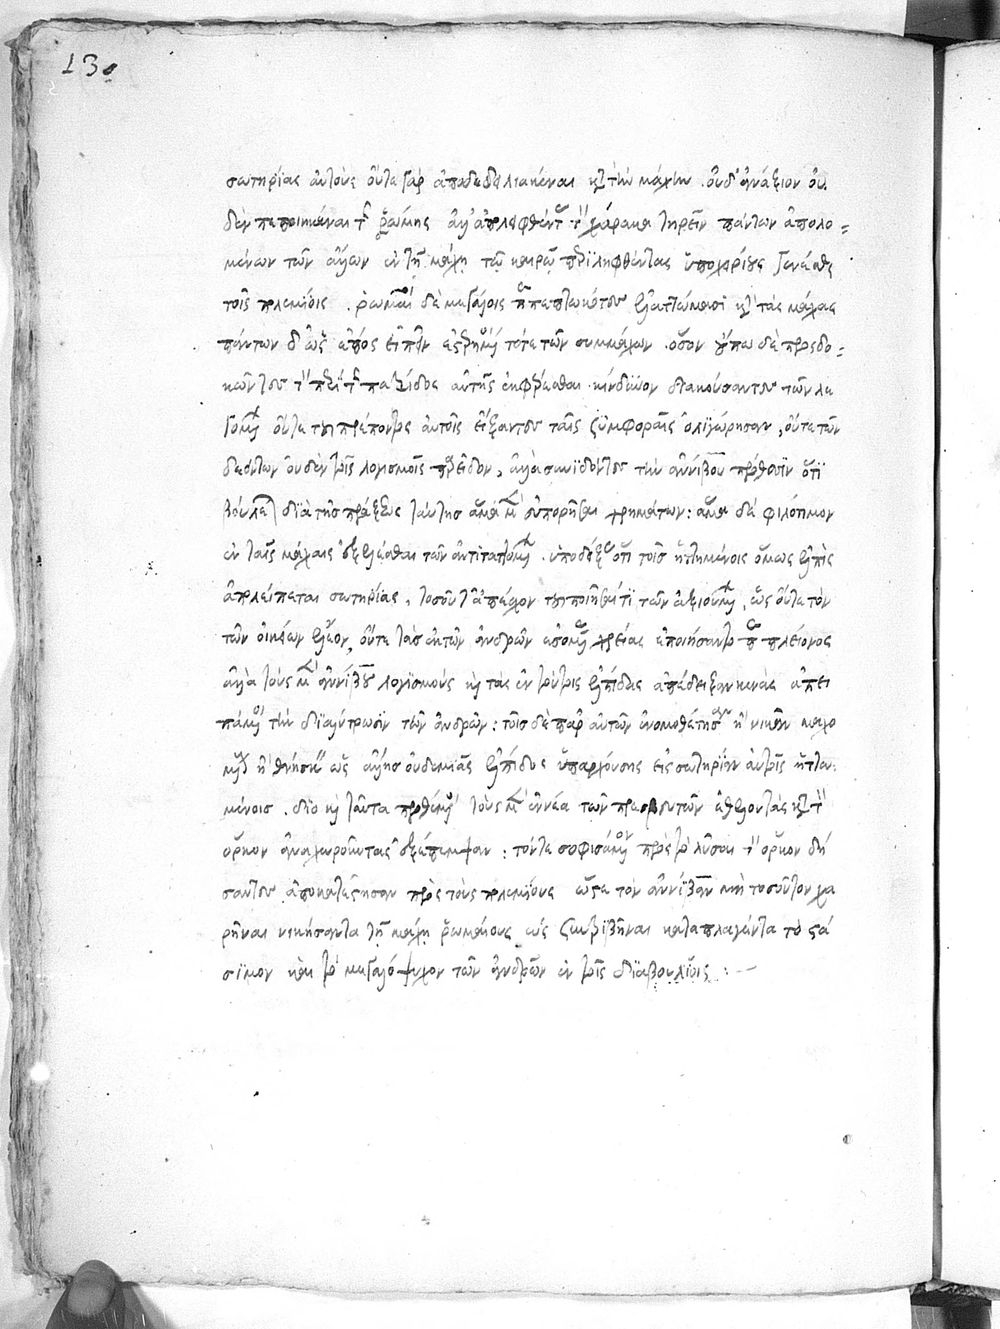 130
σωτηρίας αὐτούς οὔτε γὰρ ἀποδεδειλιακέναι κατὰ τὴν μάχην . οὐδ' ἀνάξιον οὐ
δὲν πεποιηκέναι τῆς ῥώμης ἀλλ' ἀπολειφθέντας τὸν χάρακα τηρεῖν πάντων ἀπολο=
μένων τῶν ἄλλων ἐν τῇ μάχῃ τῷ καιρῷ περιληφθέντας ὑποχειρίους γενέσθαι
τοῖς πολεμίοις . ῥωμαῖοι δὲ μεγάλοις ἐπταικότες ἐλαττώμασι κατὰ τὰς μάχας
πάντων δ' ὡς ἔπος εἰπεῖν ἐστερημένοι τότε τῶν συμμάχων . ὅσον οὔπω δὲ προσδο=
κῶντες τὸν περὶ τῆς πατρίδος αὐτοῖς ἐκφέρεσθαι κίνδυνον διακούσαντες τῶν λε
γομένων οὔτε τοῦ πρέποντος αὐτοῖς εἴξαντες ταῖς συμφοραῖς ὀλιγώρησαν , οὔτε τῶν
δεόντων οὐδὲν τοῖς λογισμοῖς παρεῖδον , ἀλλὰ συνιδόντες τὴν ἀννίβου πρόθεσιν ὅτι
βούλεται διὰ τῆς πράξεως ταύτης ἅμα μὲν εὐπορῆσαι χρημάτων : ἅμα δὲ φιλότιμον
ἐν ταῖς μάχαις ἐξελέσθαι τῶν ἀντιταττομένων . ὑποδείξας ὅτι τοῖς ἡττημένοις ὅμως ἐλπὶς
ἀπολείπεται σωτηρίας , τοσοῦτ' ἀπέσχον τοῦ ποιῆσαί τι τῶν ἀξιουμένων , ὡς οὔτε τὸν
τῶν οἰκείων ἔλεον , οὔτε τὰς ἐκ τῶν ἀνδρῶν ἐσομένας χρείας ἐποιήσαντο περὶ πλείονος
ἀλλὰ τοὺς μὲν ἀννίβου λογισμούς καὶ τὰς ἐν τούτοις ἐλπίδας ἀπέδειξαν κενὰς ἀπει
πάμενοι τὴν διαλύτρωσιν τῶν ἀνδρῶν : τοῖς δὲ παρ' αὐτῶν ἐνομοθέτησαν ἢ νικᾶν μαχο
μένους ἢ θνήσκειν ὡς ἄλλης οὐδεμιᾶς ἐλπίδος ὑπαρχούσης εἰς σωτηρίαν αὐτοῖς ἡττω
μένοις . διὸ καὶ ταῦτα προθέμενοι τοὺς μὲν ἐννέα τῶν πρεσβευτῶν ἐθελοντὰς κατὰ τὸν
ὅρκον ἀναχωροῦντας ἐξέπεμψαν : τόν τε σοφισάμενον πρὸς τὸ λῦσαι τὸν ὅρκον δή
σαντες ἀποκατέστησαν πρὸς τοὺς πολεμίους ὥστε τὸν ἀννίβαν μὴ τοσοῦτον χα
ρῆναι νικήσαντα τῇ μάχῃ ῥωμαίους ὡς συντριβῆναι καταπλαγέντα τὸ στά
σιμον καὶ τὸ μεγαλόψυχον τῶν ἀνδρῶν ἐν τοῖς διαβουλίοις : —